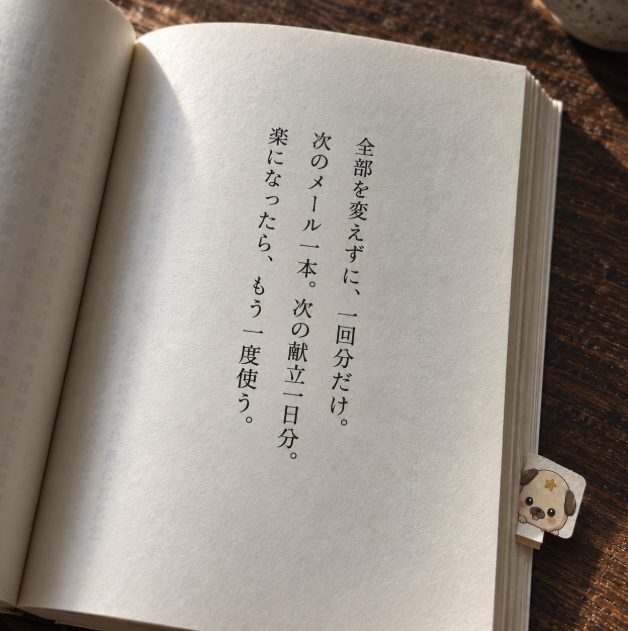 全部を変えずに、一回分だけ。
次のメール一本。次の献立一日分。
楽になったら、もう一度使う。